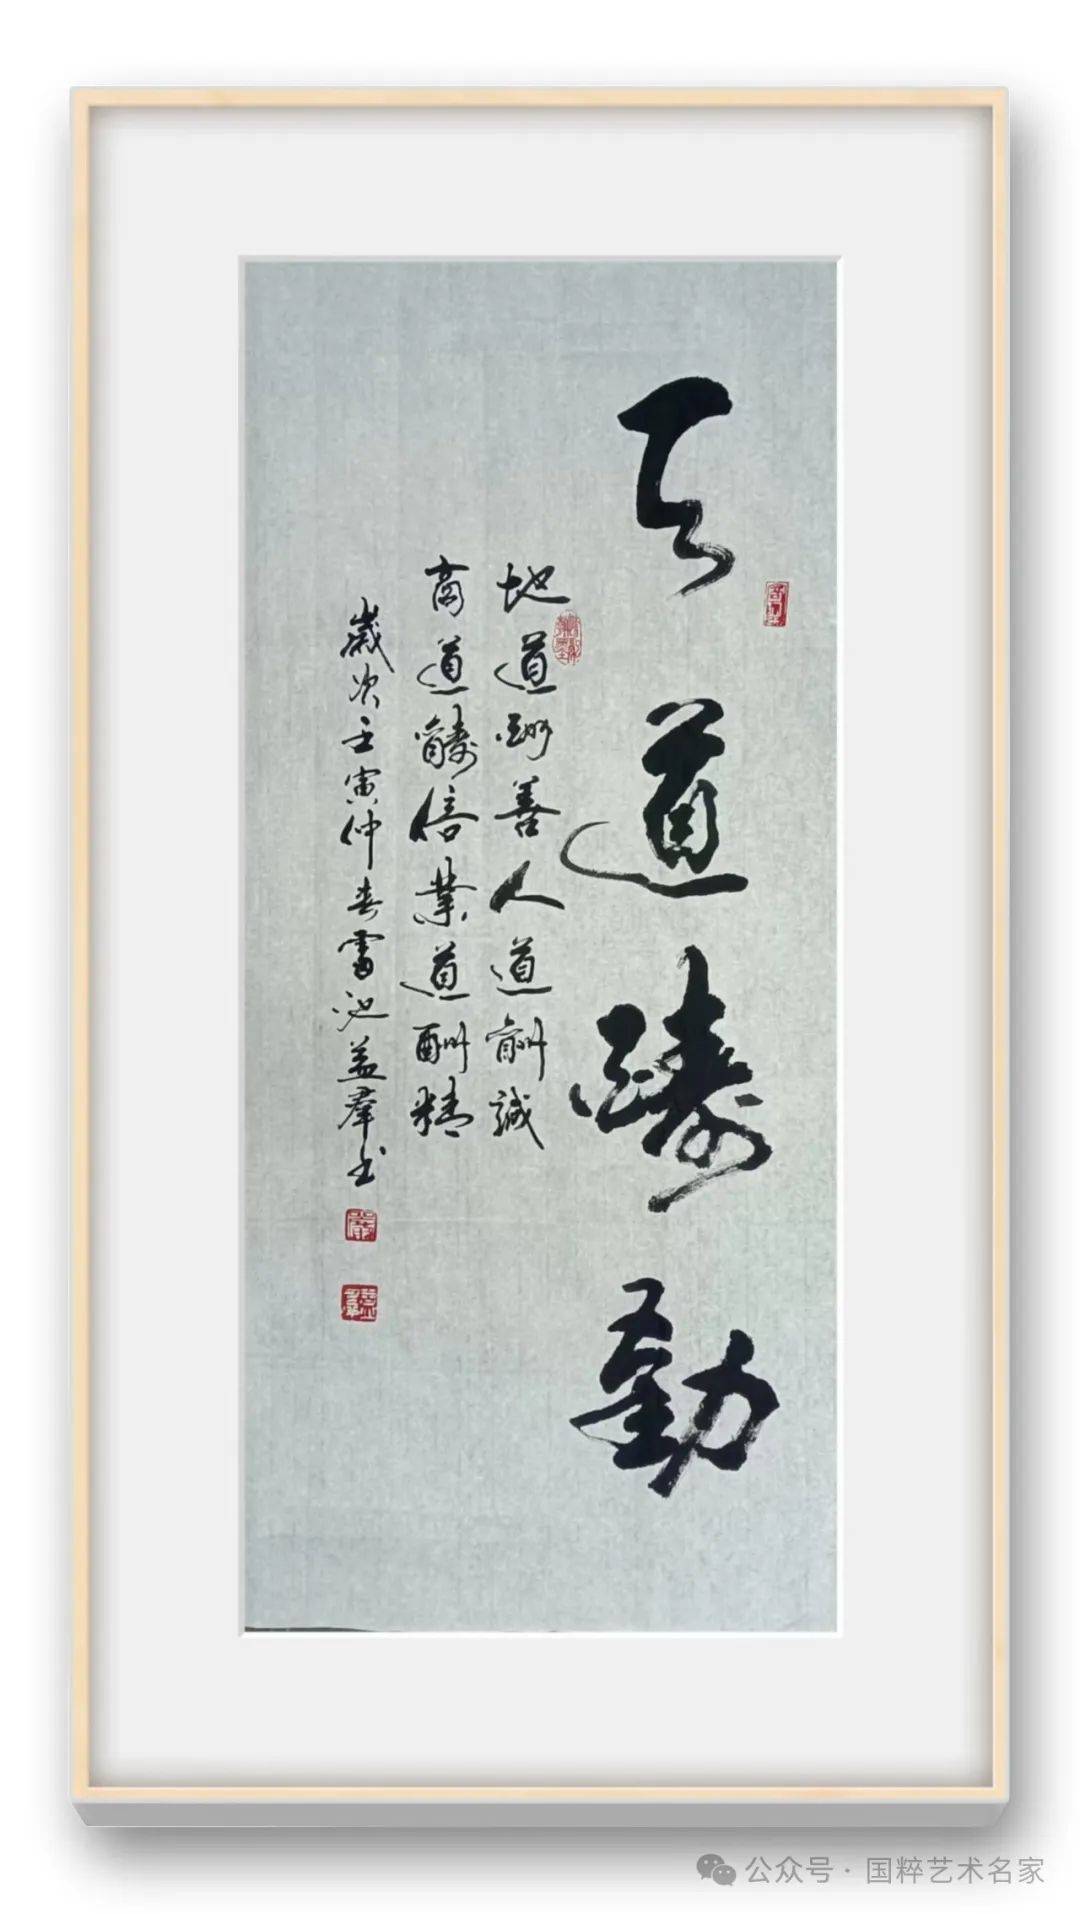 天道醻勤
地道酬善人道酬誠
商道醻信業道酬精
歲次壬寅仲春雷池益羣书
公众号 · 国粹艺术名家